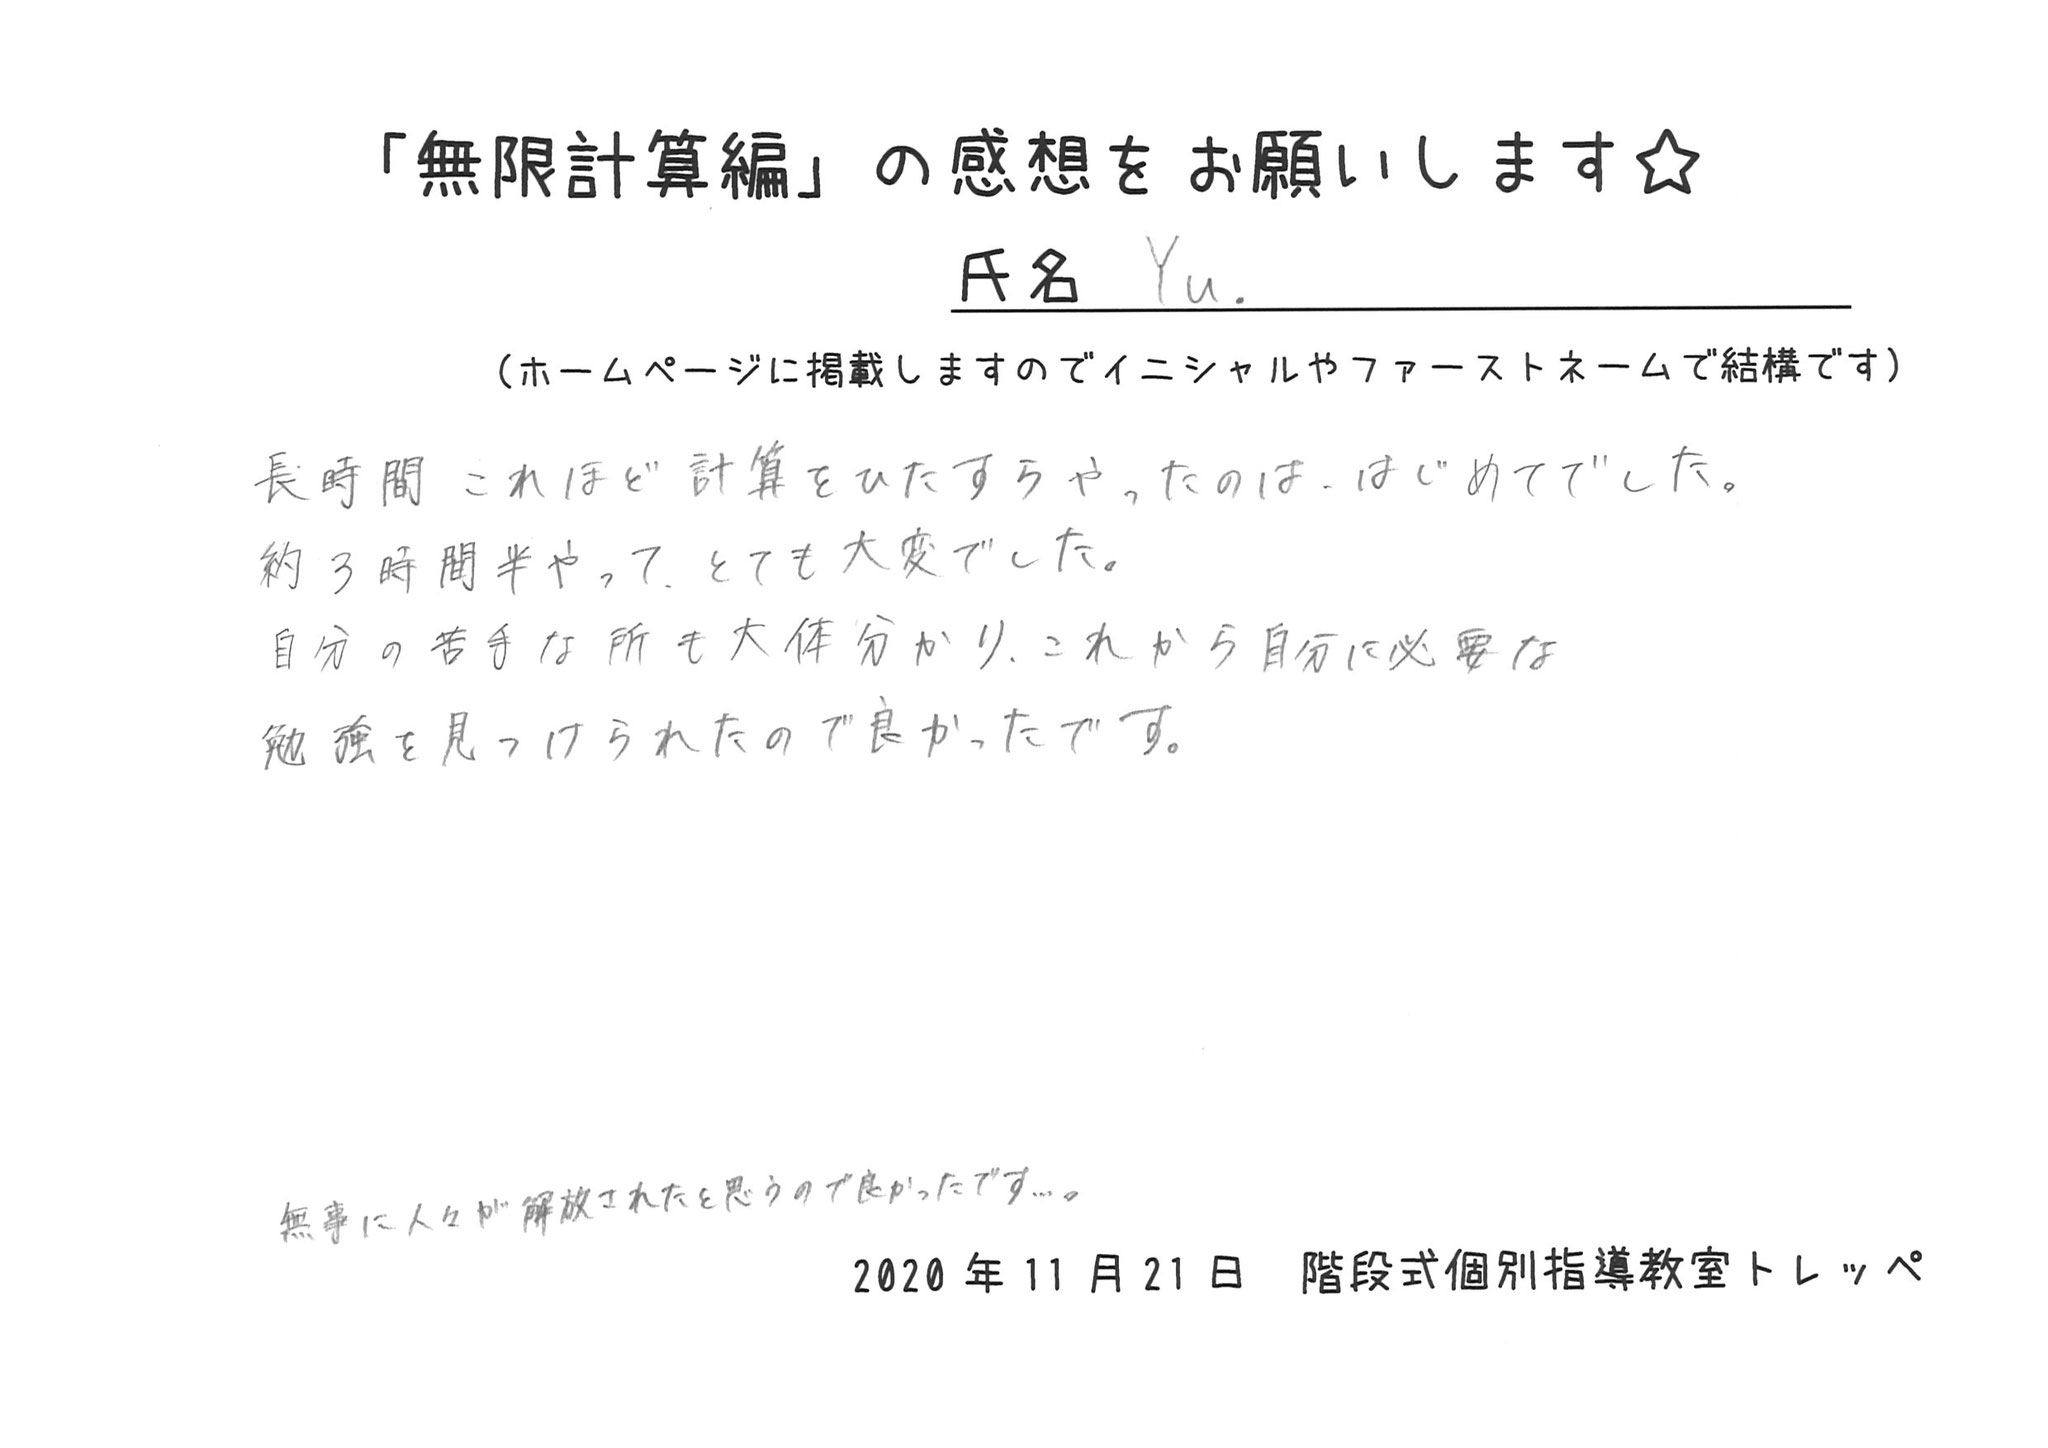 「無限計算編」の感想をお願いします☆
氏名 Yu.
（ホームページに掲載しますのでイニシャルやファーストネームで結構です）
長時間これほど計算をひたすらやったのは、はじめてでした。
約3時間半やって、とても大変でした。
自分の苦手な所も大体分かり、これから自分に必要な
勉強を見つけられたので良かったです。
無事に人々が解放されたと思うので良かったです…。
2020年11月21日 階段式個別指導教室トレッペ